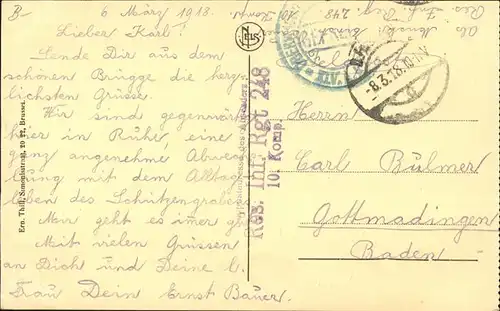 B- 6 März 1918.
Lieber Karl!
Sende Dir aus dem
schönen Brügge die herz-
lichsten Grüsse.
Wir sind gegenwärtig
hier in Ruhe, eine
ganz angenehme Abwechs-
lung mit dem Alltag-
leben des Schützengrabens
Mir geht es immer gut
Mit vielen Grüssen
an Dich und Deine l.
Frau Dein Ernst Bauer.
Ern. Thill, Brussel.
NELS
Res. Inf. Rgt. 248
10. Komp.
Res. Inf. Reg.
248
-8.3.18. 10-11.V.
Herrn
Carl Bülmer
Gottmadingen
Baden